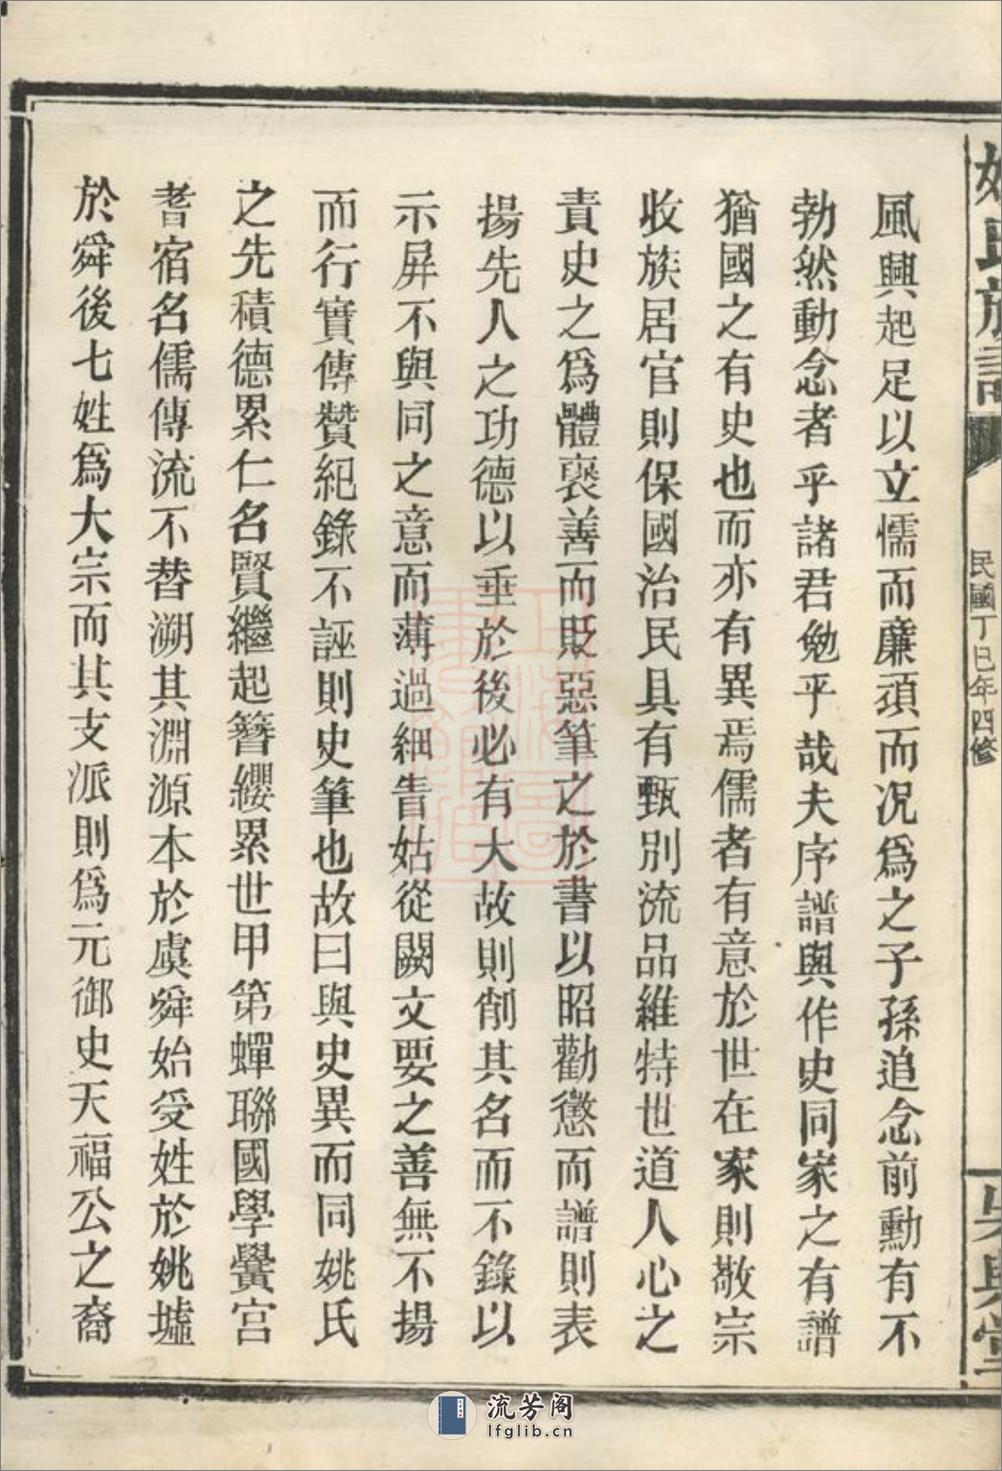 姚氏族譜
民國丁巳年四修
吳興堂
風興起足以立懦而廉頑而况爲之子孫追念前勳有不
勃然動念者乎諸君勉乎哉夫序譜與作史同家之有譜
猶國之有史也而亦有異焉儒者有意於世在家則敬宗
收族居官則保國治民具有甄別流品維特世道人心之
責史之爲體襃善而貶惡筆之於書以昭勸懲而譜則表
揚先人之功德以垂於後必有大故則削其名而不錄以
示屏不與同之意而薄過細眚姑從闕文要之善無不揚
而行實傳贊紀錄不誣則史筆也故曰與史異而同姚氏
之先積德累仁名賢繼起簪纓累世甲第蟬聯國學黌宮
耆宿名儒傳流不替溯其淵源本於虞舜始受姓於姚墟
於舜後七姓爲大宗而其支派則爲元御史天福公之裔
流芳阁
lfglib.cn